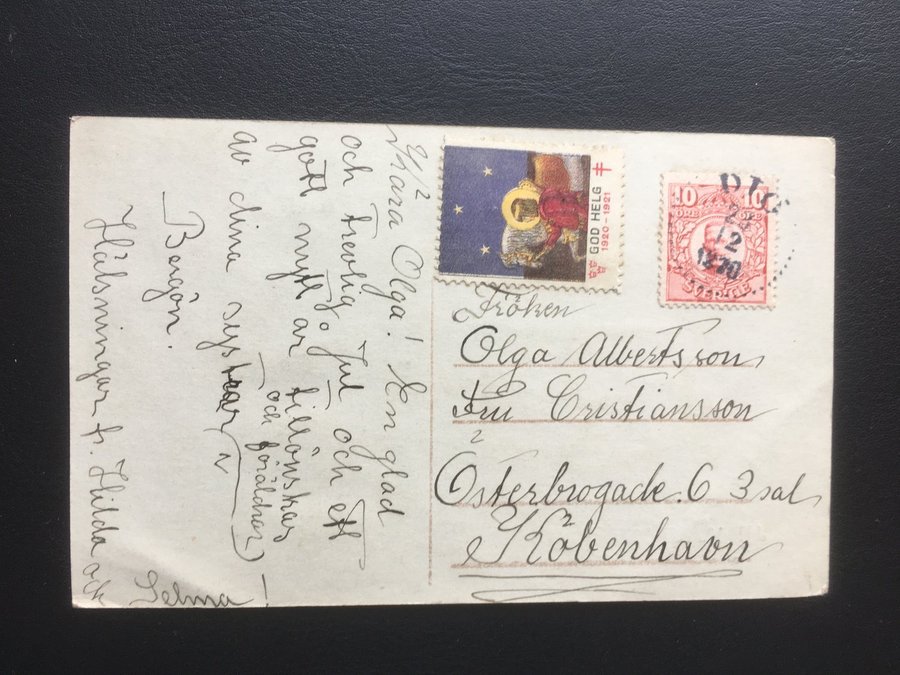 Kära Olga! En glad
och trevlig Jul och ett
gott nytt år tillönskas
av dina systrar
och föräldrar
Bergön.
Hälsningar fr. Hilda och
Selma
GOD HELG
1920-1921
10 10
ÖRE ÖRE
SVERIGE
23
12
1920
Fröken
Olga Albertsson
Fru Cristiansson
Österbrogade. 6 3 sal
Köbenhavn